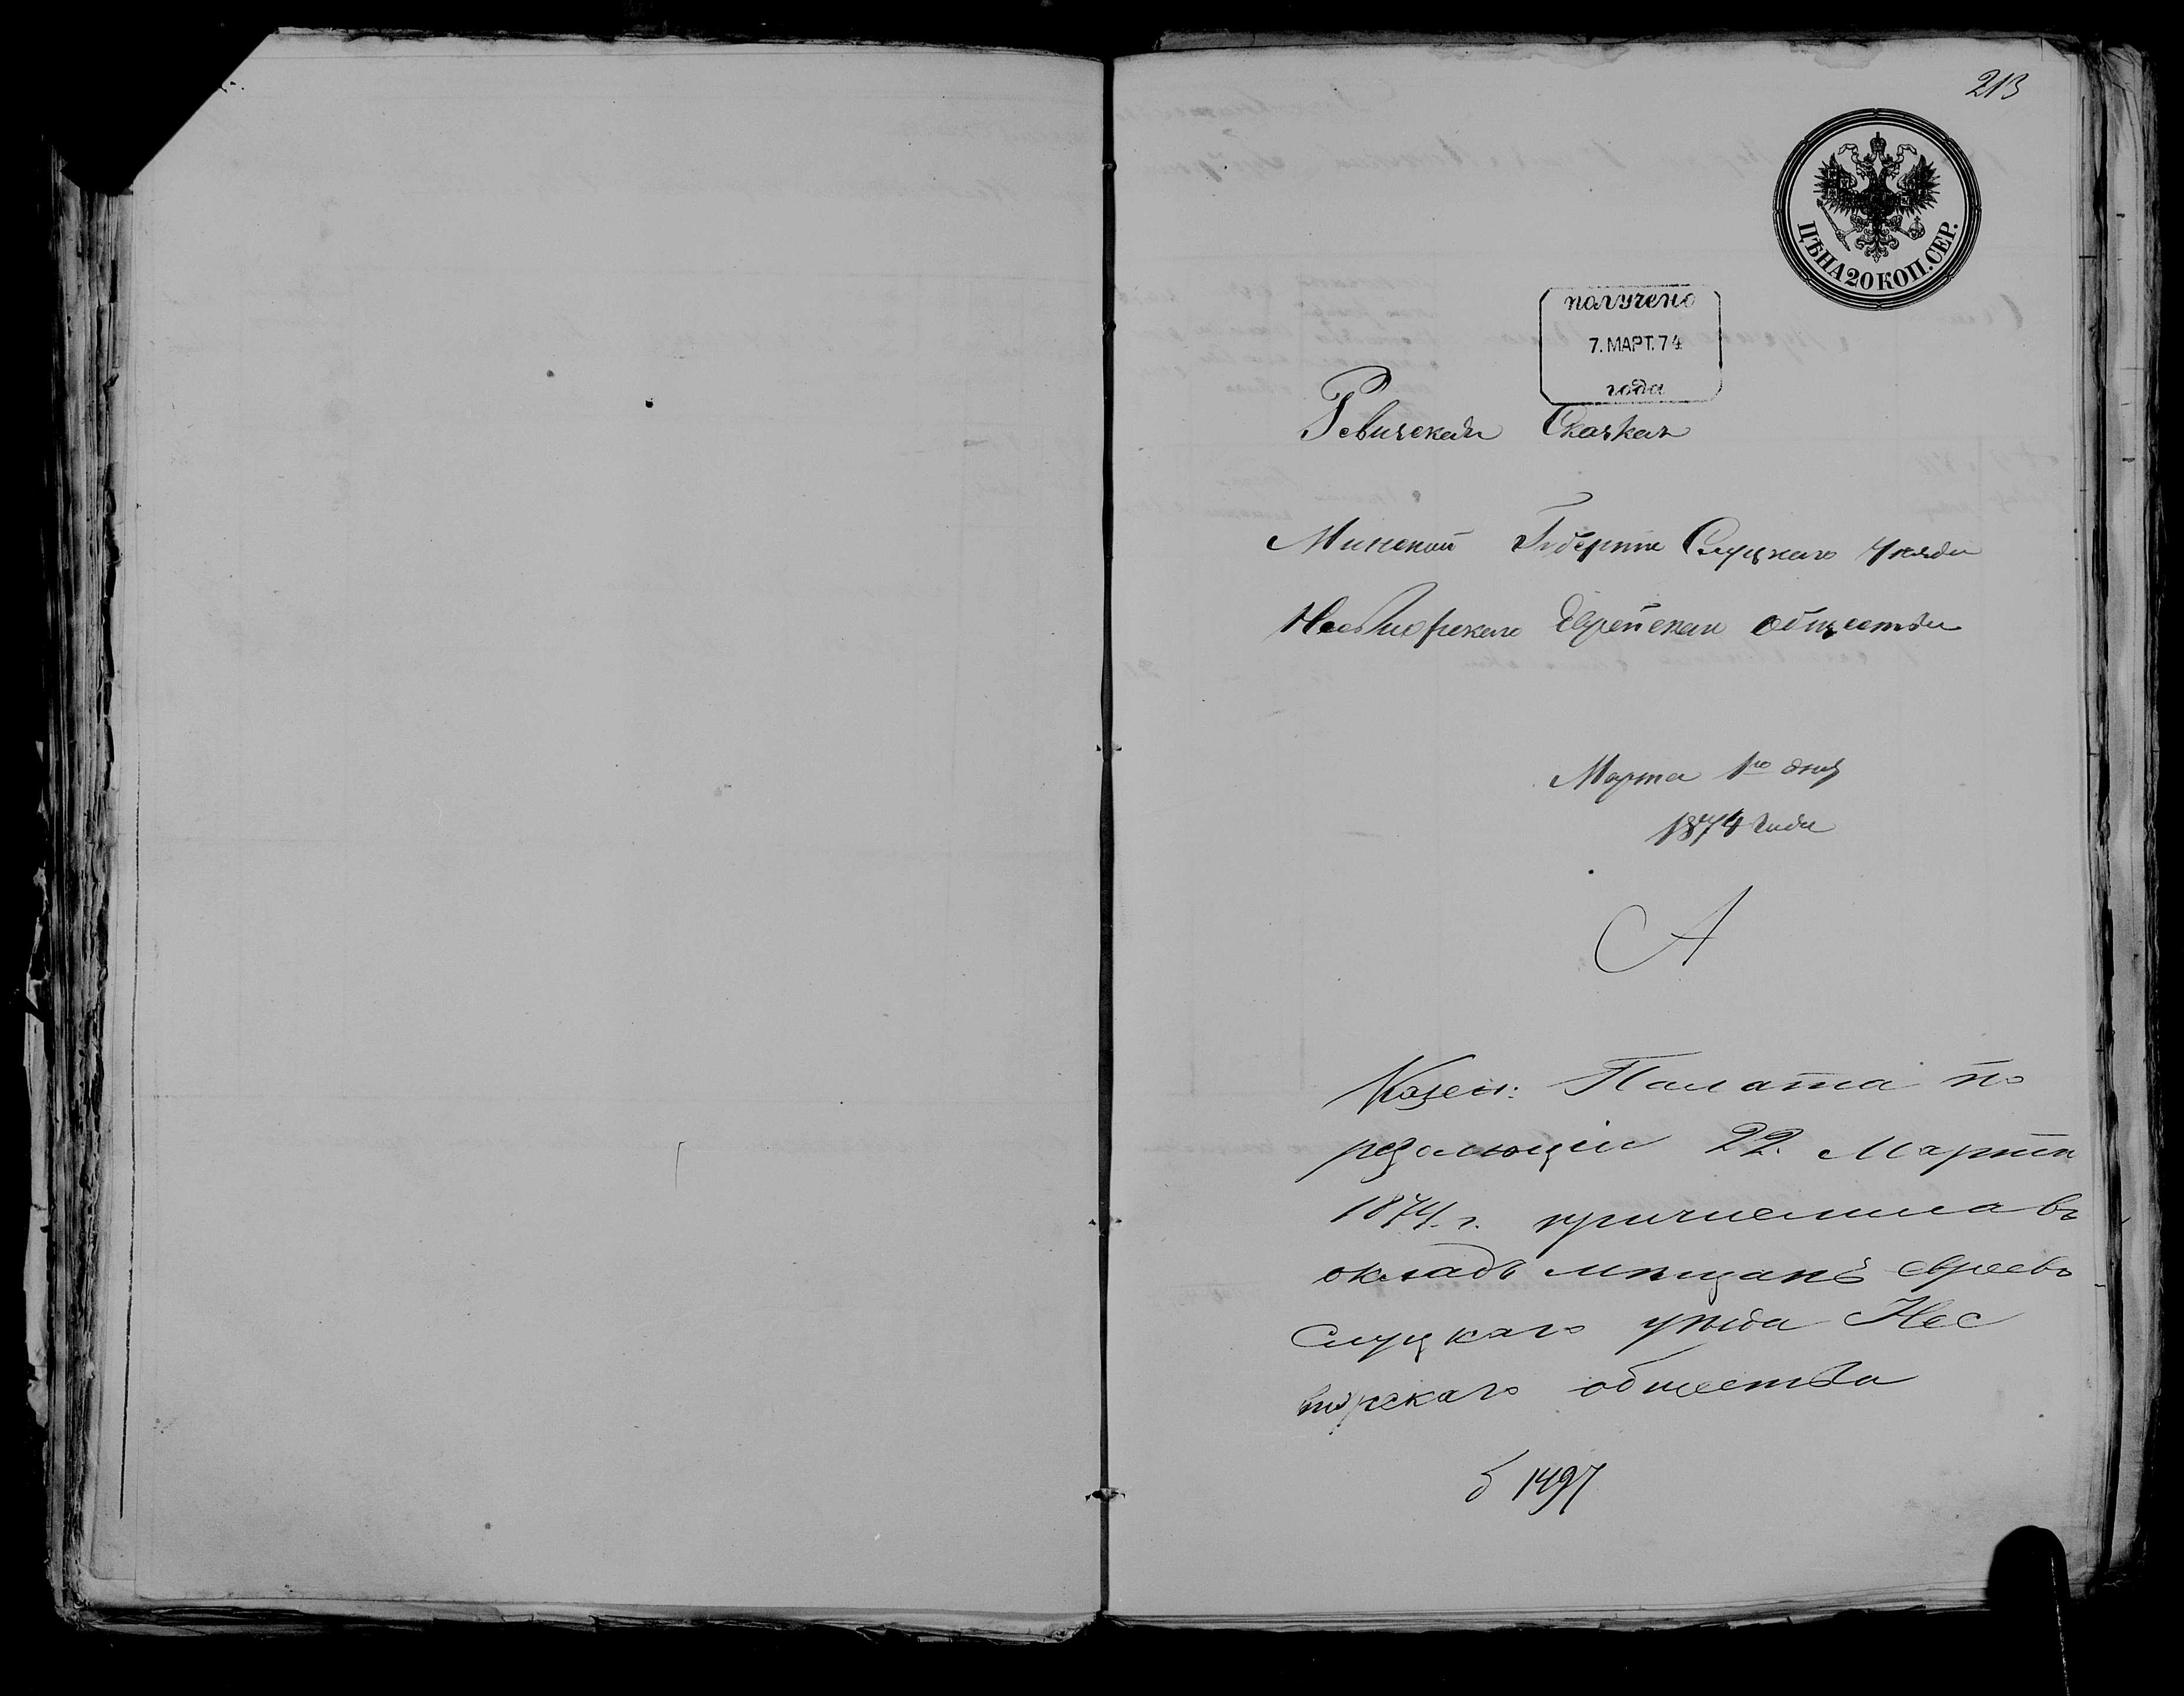 213
ЦѢНА 20 КОП. СЕР.
получено
7. МАРТ. 74
года
Ревизская Сказка
Минской Губерніи Слуцкаго уезда
Несвижскаго Еврейскаго общества
Марта 1го дня
1874 года
А
Казен: Палата по
резолюціи 22. Марта
1874. г. причислила въ
окладъ мѣщанъ евреевъ
Слуцкаго уѣзда Нес
вижскаго общества
1497